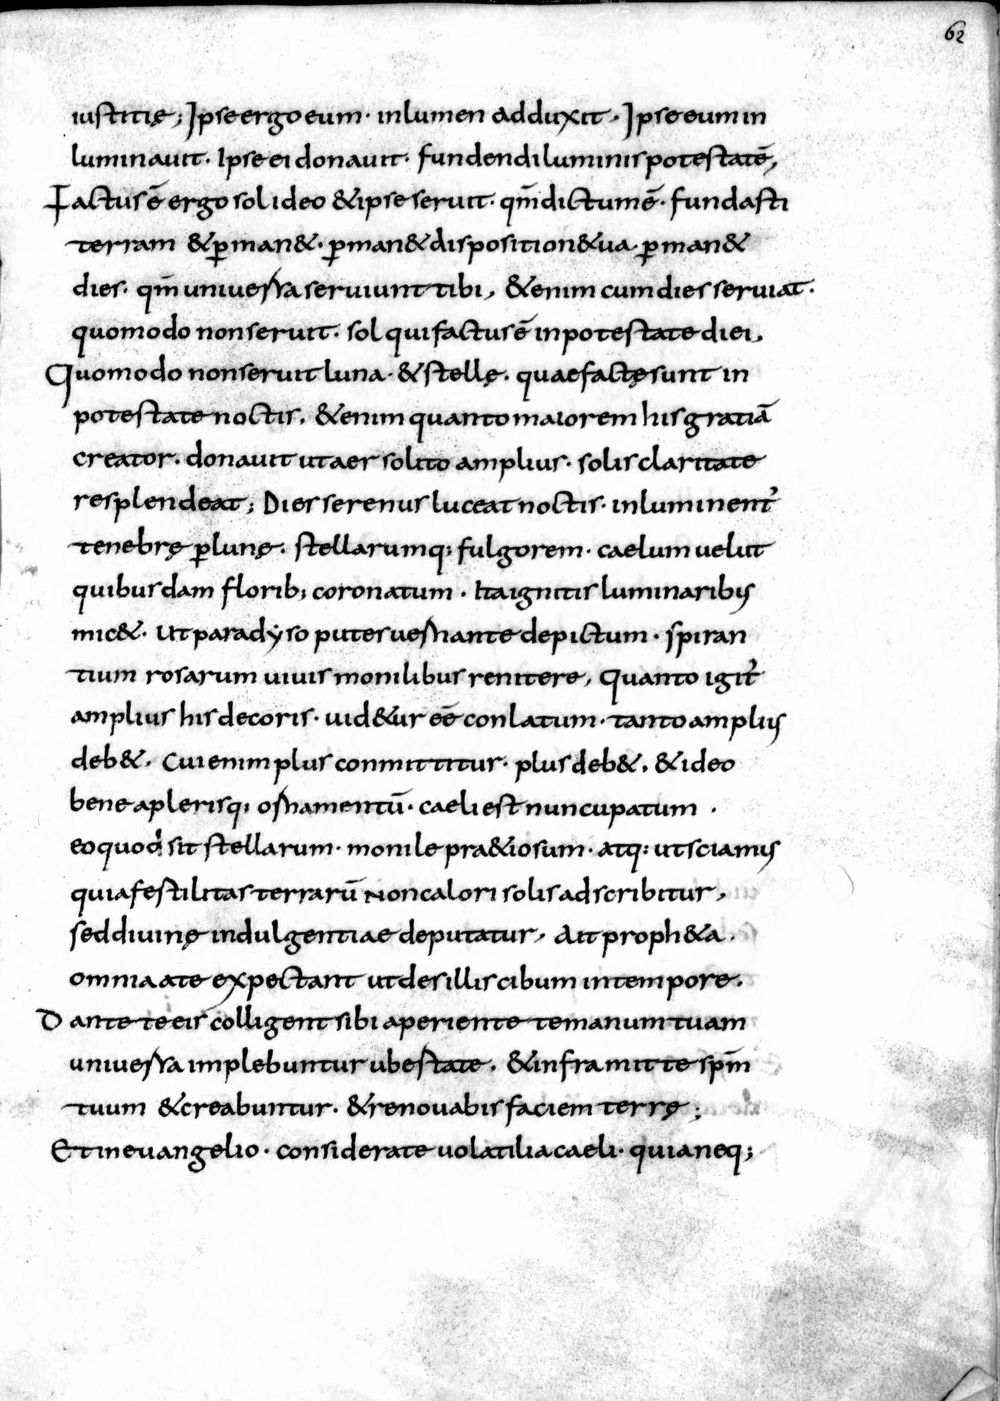 62
iustitię; Ipse ergo eum · in lumen adduxit · Ipse eum in
luminauit · Ipse ei donauit · fundendi luminis potestatē,
Factus ē ergo sol ideo & ipse seruit · qm̄ dictum ē · fundasti
terram & p̱man& · p̱man& disposition& ua · p̱man&
dies · qm̄ uniuersa seruiunt tibi, &enim cum dies seruiat ·
quomodo non seruit · sol qui factus ē in potestate diei,
Quomodo non seruit luna · & stellę · quae factę sunt in
potestate noctis, &enim quanto maiorem his gratiā
creator · donauit ut aer solito amplius · solis claritate
resplendeat; Dies serenus luceat noctis · inluminent᷑
tenebrę p̱ lunę · stellarumq: fulgorem · caelum uelut
quibusdam florib; coronatum · Ita ignitis luminaribus
mic& · ut paradẏso putes uernante depictum · spiran
tium rosarum uiuis monilibus renitere, Quanto igit᷑
amplius his decoris · uid&ur eē conlatum · tanto amplius
deb& · Cui enim plus conmittitur · plus deb& · & ideo
bene a plerisq; ornamentū · caeli est nuncupatum ·
eo quod sit stellarum · monile pra&iosum · atq: ut sciamus
quia festilitas terrarū Non calori solis adscribitur,
sed diuinę indulgentiae deputatur, Ait proph&a ·
omnia a te expectant ut des illis cibum in tempore ·
Dante te eis colligent sibi aperiente te manum tuam
uniuersa implebuntur ubestate · & infra mitte spm̄
tuum & creabuntur · & renouabis faciem terrę;
Et in euangelio · considerate uolatilia caeli · quia neq;